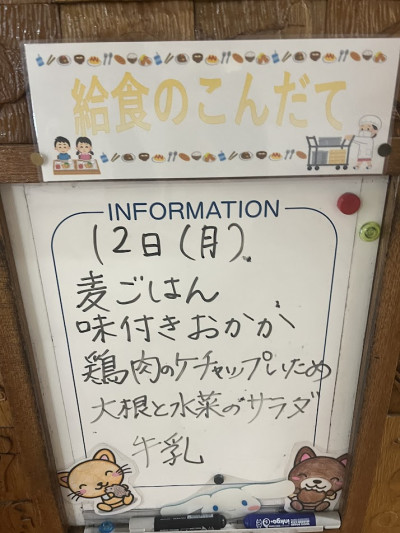 給食のこんだて
INFORMATION
12日(月)
麦ごはん
味付きおかか
鶏肉のケチャップいため
大根と水菜のサラダ
牛乳